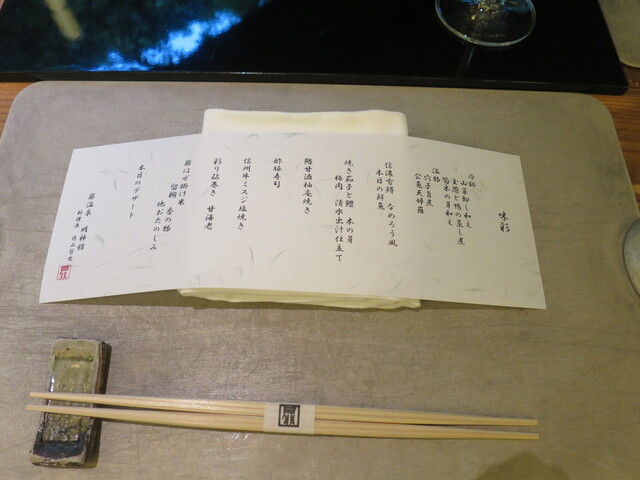 味彩
冷鉢
山菜卸し和え
玉葱と鴨の蒸し煮
筍木の芽和え
温物
穴子旨煮
公魚天婦羅
信濃雪鱒 なめろう風
本日の鮮魚
焼き茄子と鱧 木の芽
梅肉 清水出汁仕立て
鰆甘酒柚庵焼き
酢豚寿司
信州牛ミスジ塩焼き
彩り砧巻き 甘海老
扉はぜ掛け米
留椀 香の物
他おたのしみ
本日のデザート
扉温泉 明神館
料理長